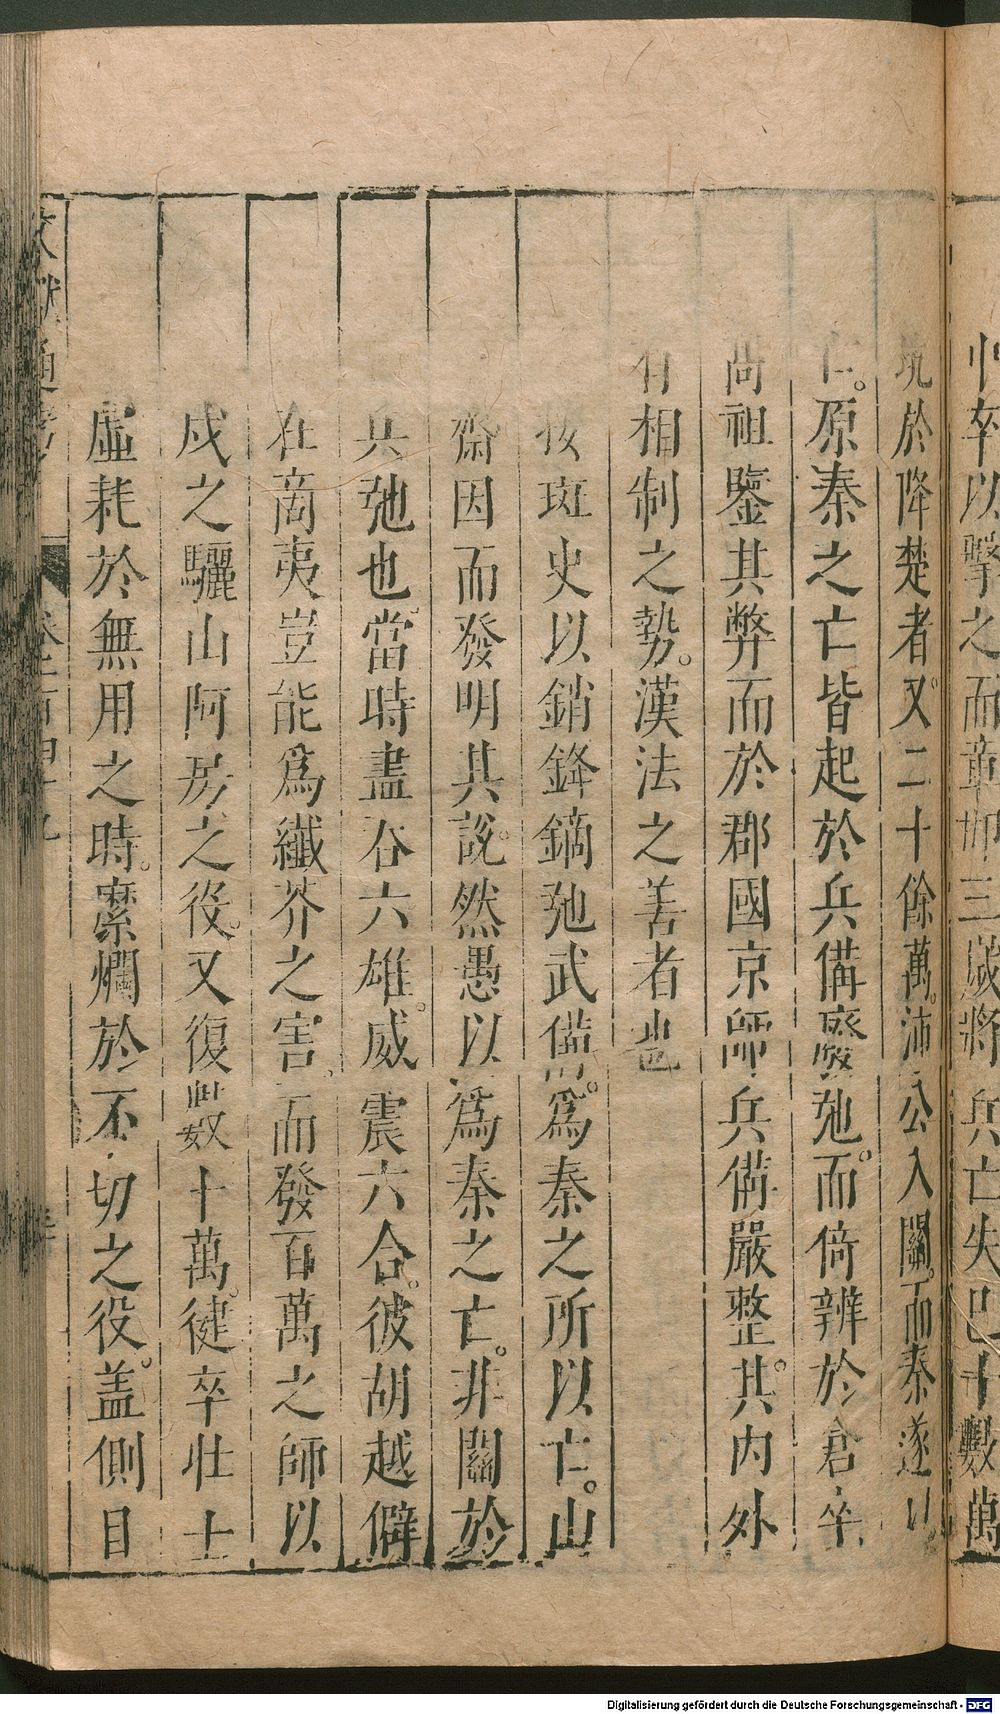 卒以擊之而章邯三歲將兵亡失已十數萬
坑於降楚者又二十餘萬沛公入關而秦遂以
亡。原秦之亡皆起於兵備廢弛。而倚辨於倉卒
高祖鑒其弊而於郡國京師兵備嚴整。其內外
有相制之勢。漢法之善者也
按班史以銷鋒鏑弛武備。爲秦之所以亡。山
齋因而發明其說。然愚以爲秦之亡。非關於
兵弛也。當時盡吞六雄。威震六合。彼胡越僻
在裔夷。豈能爲纖芥之害。而發百萬之師以
戍之驪山阿房之役。又復數十萬。徤卒壯士
虛耗於無用之時。縻爛於不切之役。盖側目
文獻通考
卷之一百四十九
Digitalisierung gefördert durch die Deutsche Forschungsgemeinschaft - DFG